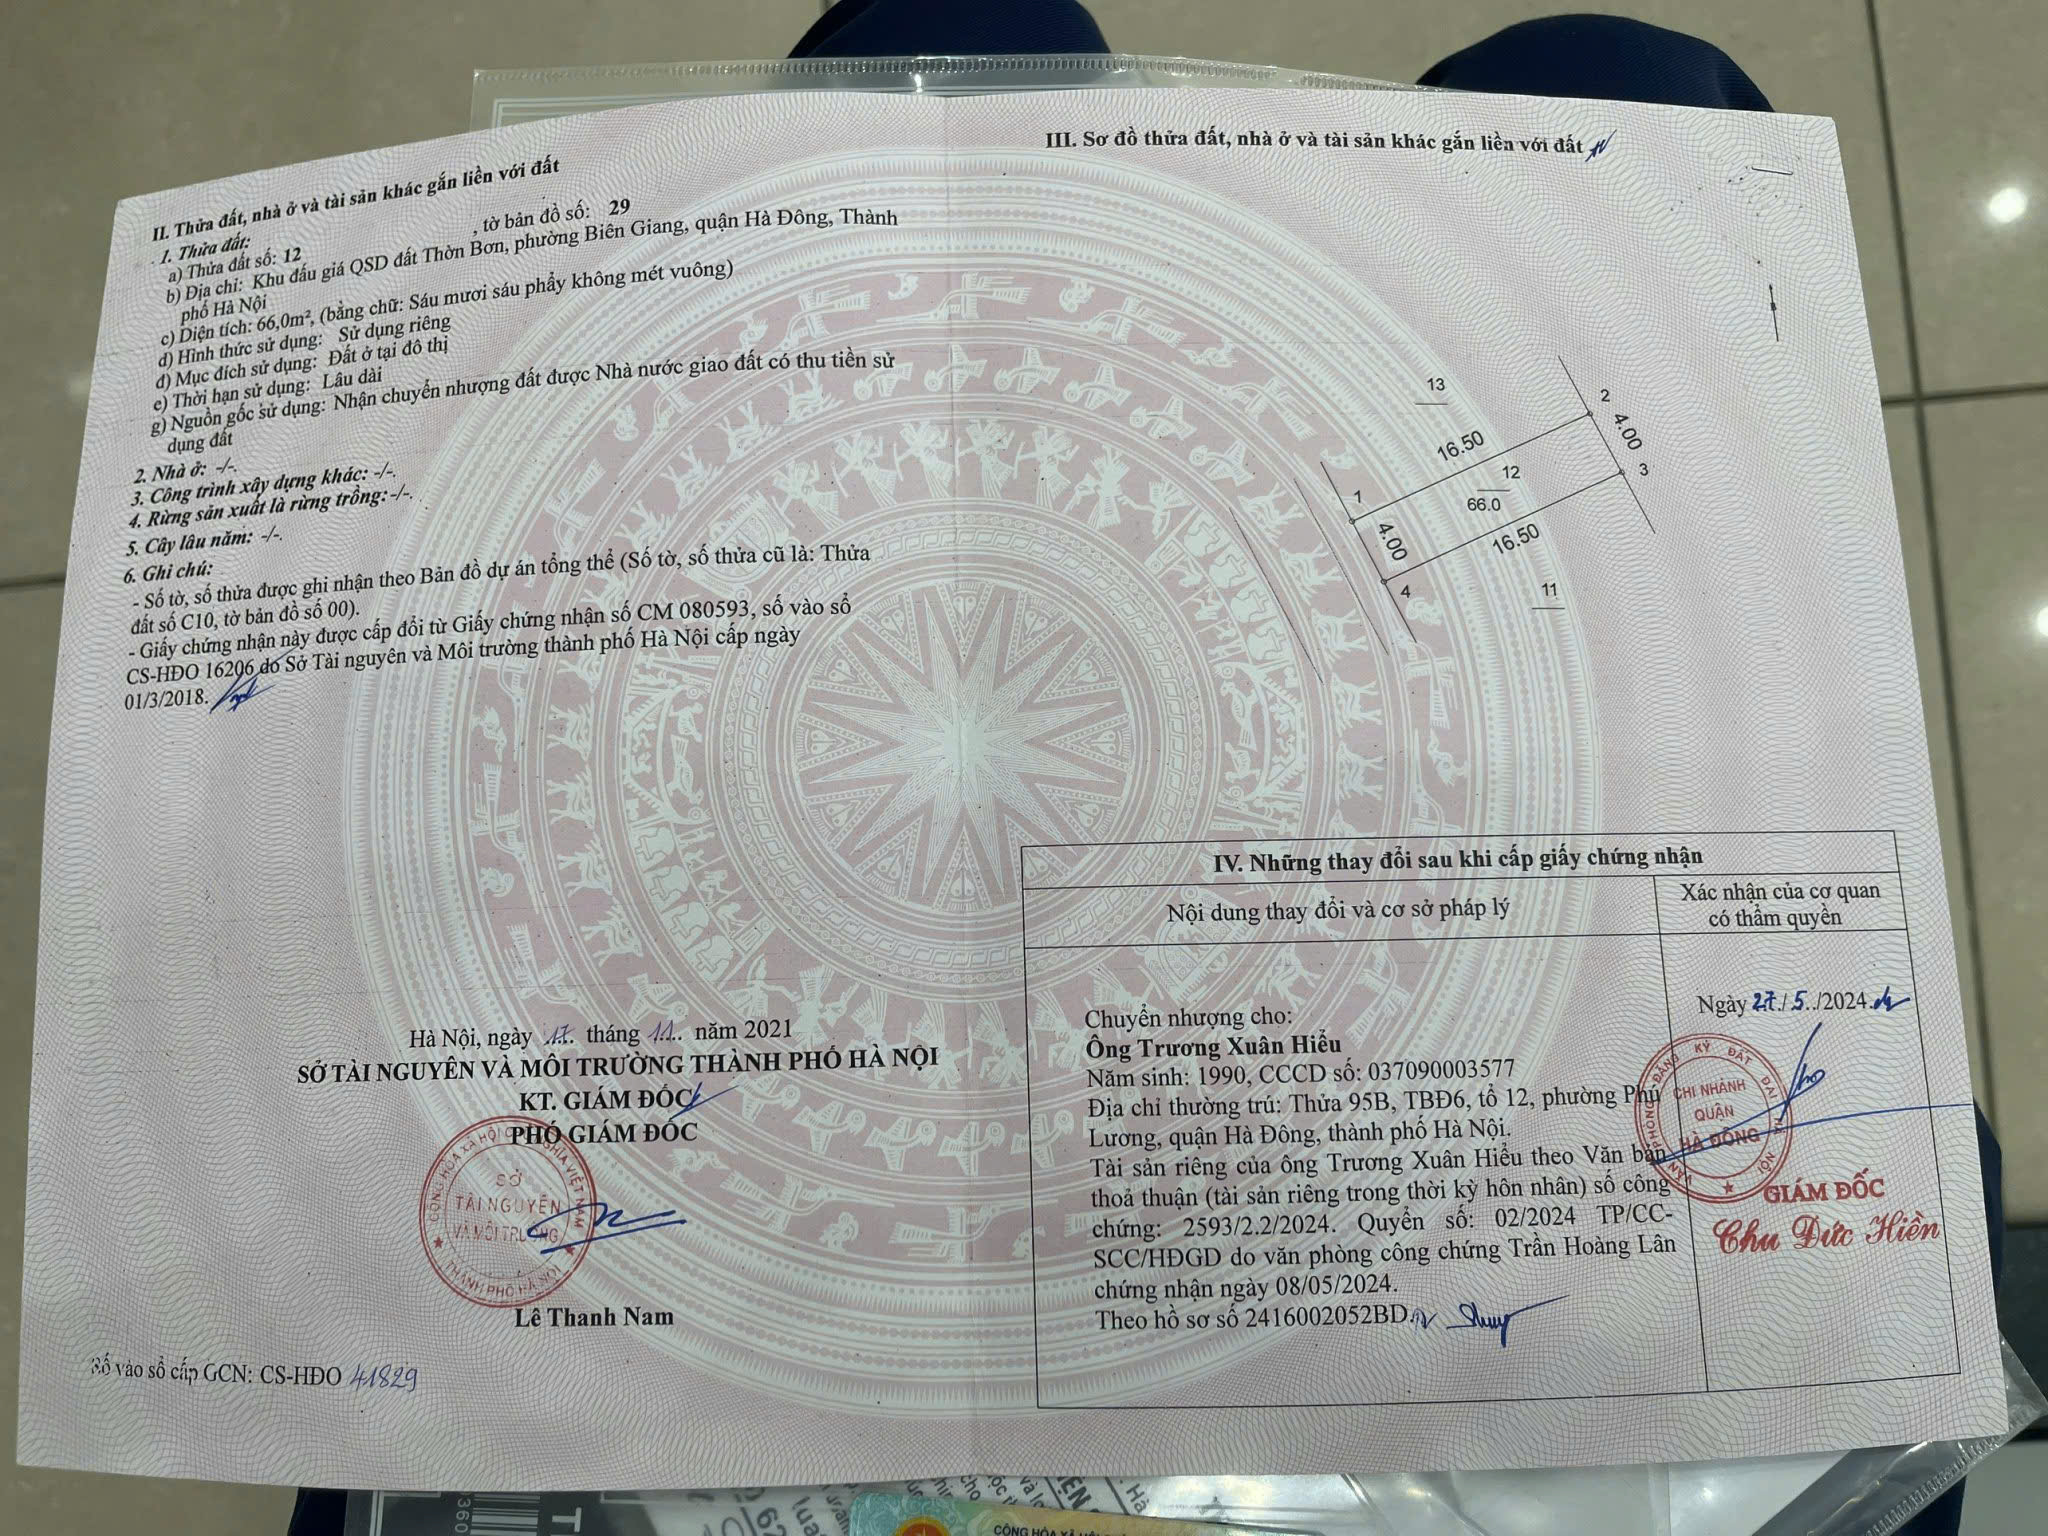 II. Thửa đất, nhà ở và tài sản khác gắn liền với đất
1. Thửa đất:
a) Thửa đất số: 12 , tờ bản đồ số: 29
b) Địa chỉ: Khu đấu giá QSD đất Thờn Bơn, phường Biên Giang, quận Hà Đông, Thành
phố Hà Nội
c) Diện tích: 66,0m², (bằng chữ: Sáu mươi sáu phẩy không mét vuông)
d) Hình thức sử dụng: Sử dụng riêng
đ) Mục đích sử dụng: Đất ở tại đô thị
e) Thời hạn sử dụng: Lâu dài
g) Nguồn gốc sử dụng: Nhận chuyển nhượng đất được Nhà nước giao đất có thu tiền sử
dụng đất
2. Nhà ở: -/-.
3. Công trình xây dựng khác: -/-.
4. Rừng sản xuất là rừng trồng: -/-.
5. Cây lâu năm: -/-.
6. Ghi chú:
- Số tờ, số thửa được ghi nhận theo Bản đồ dự án tổng thể (Số tờ, số thửa cũ là: Thửa
đất số C10, tờ bản đồ số 00).
- Giấy chứng nhận này được cấp đổi từ Giấy chứng nhận số CM 080593, số vào sổ
CS-HĐO 16206 do Sở Tài nguyên và Môi trường thành phố Hà Nội cấp ngày
01/3/2018.
Hà Nội, ngày 17 tháng 11 năm 2021
SỞ TÀI NGUYÊN VÀ MÔI TRƯỜNG THÀNH PHỐ HÀ NỘI
KT. GIÁM ĐỐC
PHÓ GIÁM ĐỐC
CỘNG HÒA XÃ HỘI CHỦ NGHĨA VIỆT NAM
SỞ
TÀI NGUYÊN
VÀ MÔI TRƯỜNG
THÀNH PHỐ HÀ NỘI
Lê Thanh Nam
Số vào sổ cấp GCN: CS-HĐO 41829
III. Sơ đồ thửa đất, nhà ở và tài sản khác gắn liền với đất
13
2
16.50
4.00
12
3
1
66.0
4.00
16.50
4
11
IV. Những thay đổi sau khi cấp giấy chứng nhận
Nội dung thay đổi và cơ sở pháp lý
Xác nhận của cơ quan
có thẩm quyền
Chuyển nhượng cho:
Ông Trương Xuân Hiểu
Năm sinh: 1990, CCCD số: 037090003577
Địa chỉ thường trú: Thửa 95B, TBĐ6, tổ 12, phường Phú
Lương, quận Hà Đông, thành phố Hà Nội.
Tài sản riêng của ông Trương Xuân Hiểu theo Văn bản
thoả thuận (tài sản riêng trong thời kỳ hôn nhân) số công
chứng: 2593/2.2/2024. Quyển số: 02/2024 TP/CC-
SCC/HĐGD do văn phòng công chứng Trần Hoàng Lân
chứng nhận ngày 08/05/2024.
Theo hồ sơ số 2416002052BD.
Ngày 27/5/2024
VĂN PHÒNG ĐĂNG KÝ ĐẤT ĐAI HÀ NỘI
CHI NHÁNH
QUẬN
HÀ ĐÔNG
GIÁM ĐỐC
Chu Đức Hiền